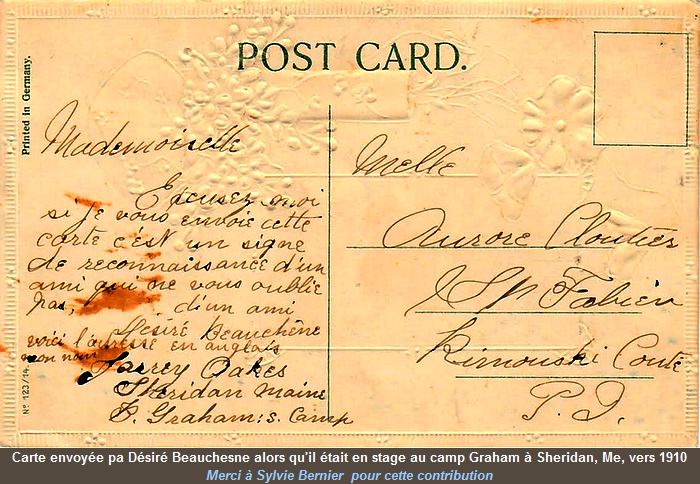 POST CARD.
Printed in Germany.
Mademoiselle
Excusez moi
si je vous envoie cette
carte c'est un signe
de reconnaissance d'un
ami qui ne vous oublie
pas, d'un ami
Désiré Beauchêne
voici l'adresse en anglais
mon nom
Oakes
Sheridan Maine
Graham:s. Camp
No 123/14.
Melle
Aurore Cloutier
St Fabien
Rimouski Conte
P. Q.
Carte envoyée pa Désiré Beauchesne alors qu'il était en stage au camp Graham à Sheridan, Me, vers 1910
Merci à Sylvie Bernier pour cette contribution